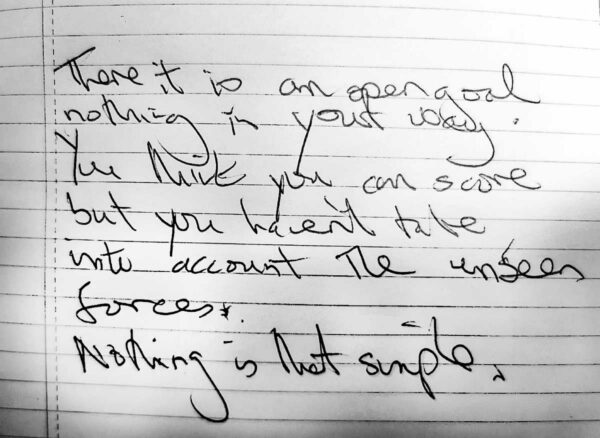 There it is an open goal
nothing in your way.
You think you can score
but you haven't take
into account the unseen
forces.
Nothing is that simple.